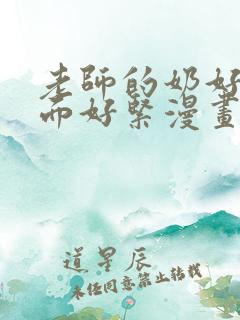 老師的奶好
而好緊漫畫
道星辰
未经同意禁止转载